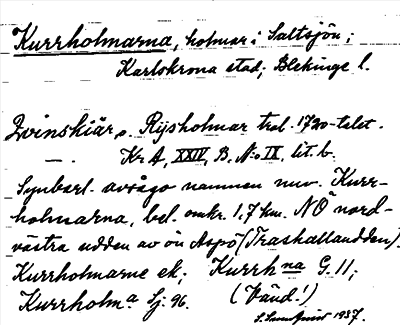 Kurrholmarna, holmar i Saltsjön;
Karlskrona stad; Blekinge l.
Zvinskiär o. Rijsholmar trol. 1720-talet.
—. Kr A, XXIV, B. N:o IX, lit. b.
Synbarl. avsågo namnen nuv. Kurr-
holmarna, bel. omkr. 1,7 km. NÖ nord-
västra udden av ön Aspö (Trashallaudden).
Kurrholmarne ek; Kurrhna G. 11;
Kurrholma Sj: 96. (Vänd!)
1937.